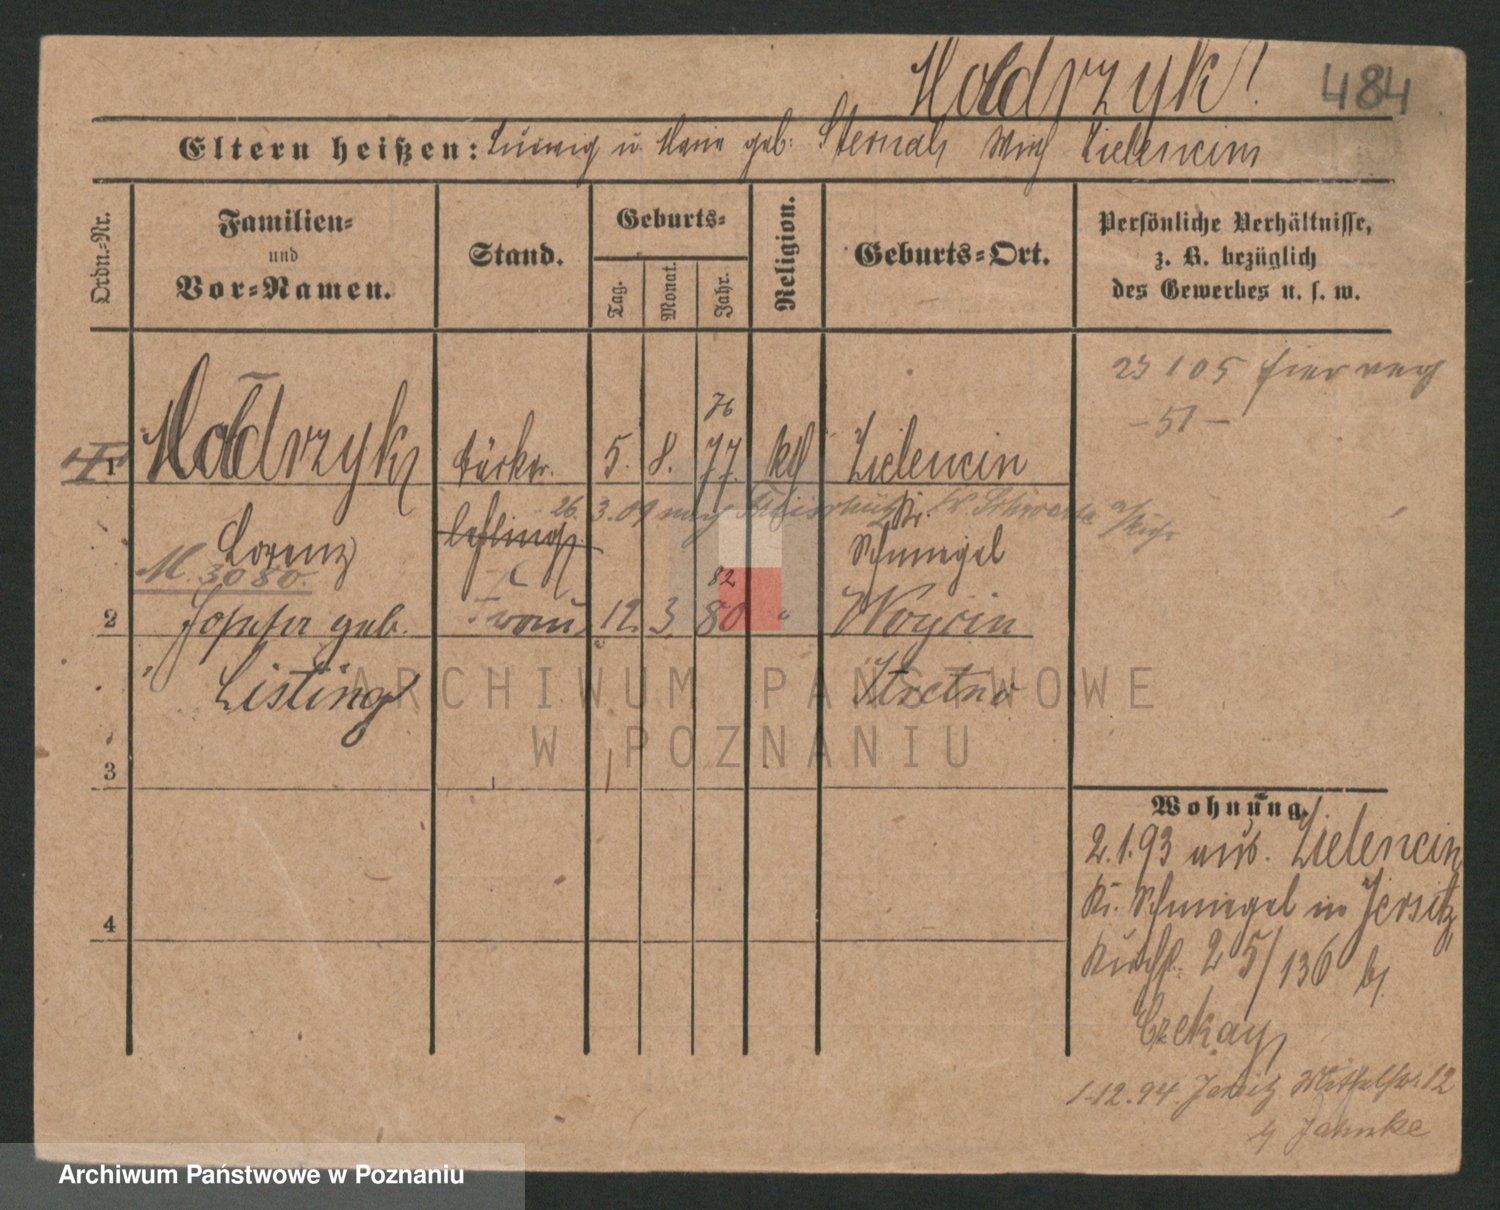 Modrzyk
484
Eltern heißen: Ludwig u. Marie geb. Sternal Zielencin
Ordn.-Nr.
Familien- und Vor-Namen.
Stand.
Geburts-
Tag.
Monat.
Jahr.
Religion.
Geburts-Ort.
Persönliche Verhältnisse,
z. B. bezüglich
des Gewerbes u. s. w.
23 1 05
- 51 -
76
1 Modrzyk Bäcker 5. 8. 77. kth Zielencin
26. 3. 09 Kr.
Lorenz Lehrling Schmiegel
M. 3080.
82
2 Josefa geb. Frau 12. 3. 80 "
Listing
3
4
Wohnung.
2.1.93 aus. Zielencin
Kr. Schmiegel in Jersitz
25/136 b/
Czekay
1.12.94. Jersitz 12
b/ Jahnke
ARCHIWUM PAŃSTWOWE
W POZNANIU
Archiwum Państwowe w Poznaniu